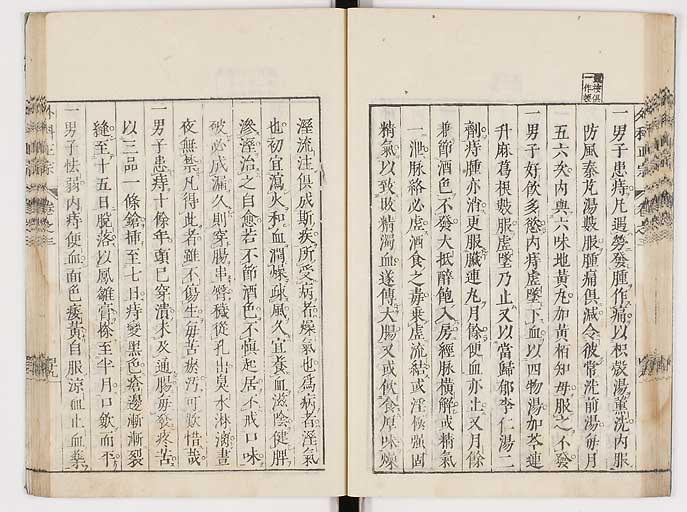 一男子患痔凡遇勞發腫作痛以枳殼湯薰洗內服
防風秦艽湯數服腫痛俱減令彼常洗前湯每月
五六次內與六味地黃丸加黃栢知母服之不發
一男子好飲多慾內痔虛墜下血以四物湯加芩連
升麻葛根數服虛墜乃止又以當歸郁李仁湯二
劑痔腫亦消更服臟連丸月餘便血亦止又月餘
兼節酒色不發大抵醉飽入房經脉橫解或精氣
一泄脉絡必虛酒食之毒乘虛流結或淫慾強固
精氣以致敗精濁血遂傳大腸又或飲食厚味燥
溼流注俱成斯疾所受病者燥氣也為病者溼氣
也初宜瀉火和血潤燥疎風久宜養血滋陰健脾
滲溼治之自愈若不節酒色不慎起居不戒口味
必成漏久則穿腸串臀穢從孔出臭水淋漓晝
夜無禁凡得此者雖不傷生每苦瘀污可歎惜哉
一男子患痔十餘年頭已穿潰未及通腸每發疼苦
以三品一條鎗揷至七日痔變黑色瘡邊漸漸裂
縫至十五日脫落以鳳雛膏搽至半月口歛而平
一男子怯弱內痔便血面色痿黃自服涼血止血藥
外科正宗
卷之三